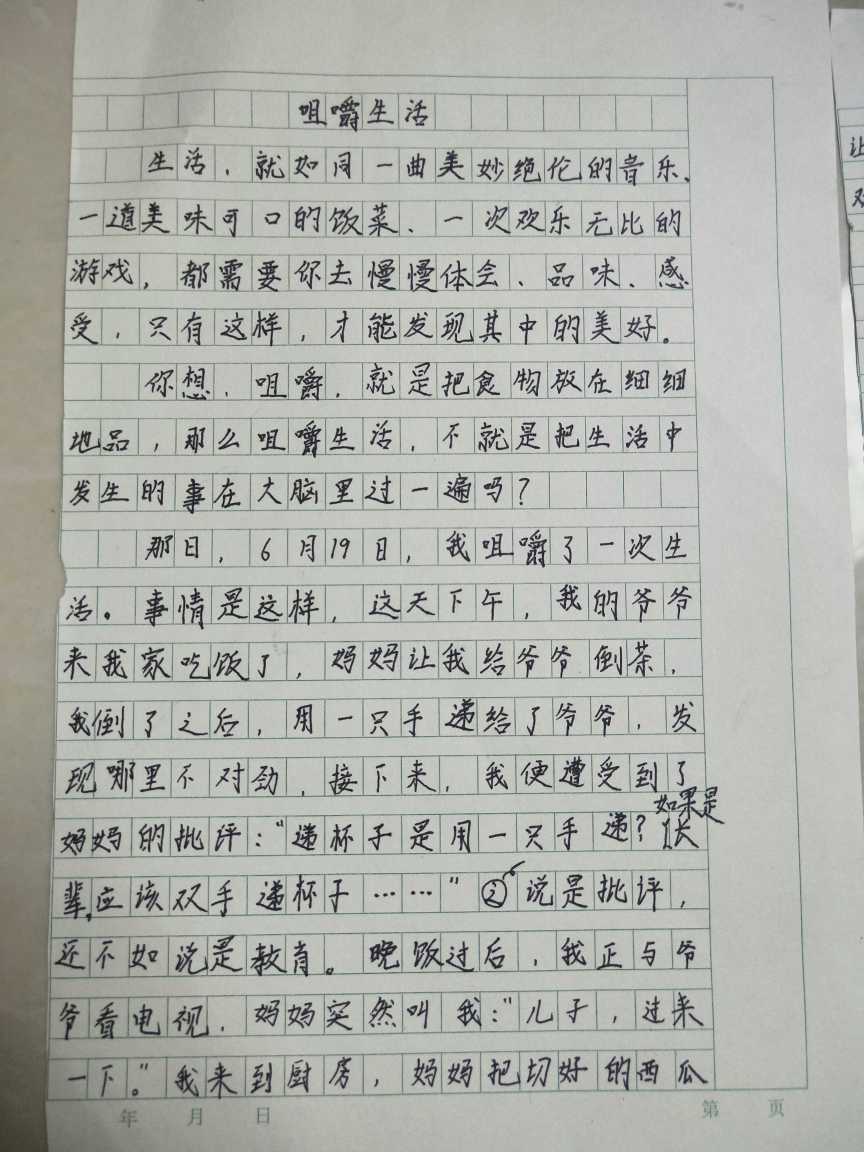 咀嚼生活
生活,就如同一曲美妙绝伦的音乐、
一道美味可口的饭菜、一次欢乐无比的
游戏,都需要你去慢慢体会、品味、感
受,只有这样,才能发现其中的美好。
你想,咀嚼,就是把食物放在细细
地品,那么咀嚼生活,不就是把生活中
发生的事在大脑里过一遍吗?
那日,6月19日,我咀嚼了一次生
活。事情是这样,这天下午,我的爷爷
来我家吃饭了,妈妈让我给爷爷倒茶,
我倒了之后,用一只手递给了爷爷,发
现哪里不对劲,接下来,我便遭受到了
妈妈的批评:“递杯子是用一只手递?如果是长
辈,应该双手递杯子……”说是批评,
还不如说是教育。晚饭过后,我正与爷
爷看电视,妈妈突然叫我:“儿子,过来
一下。”我来到厨房,妈妈把切好的西瓜
年 月 日 第 页
让